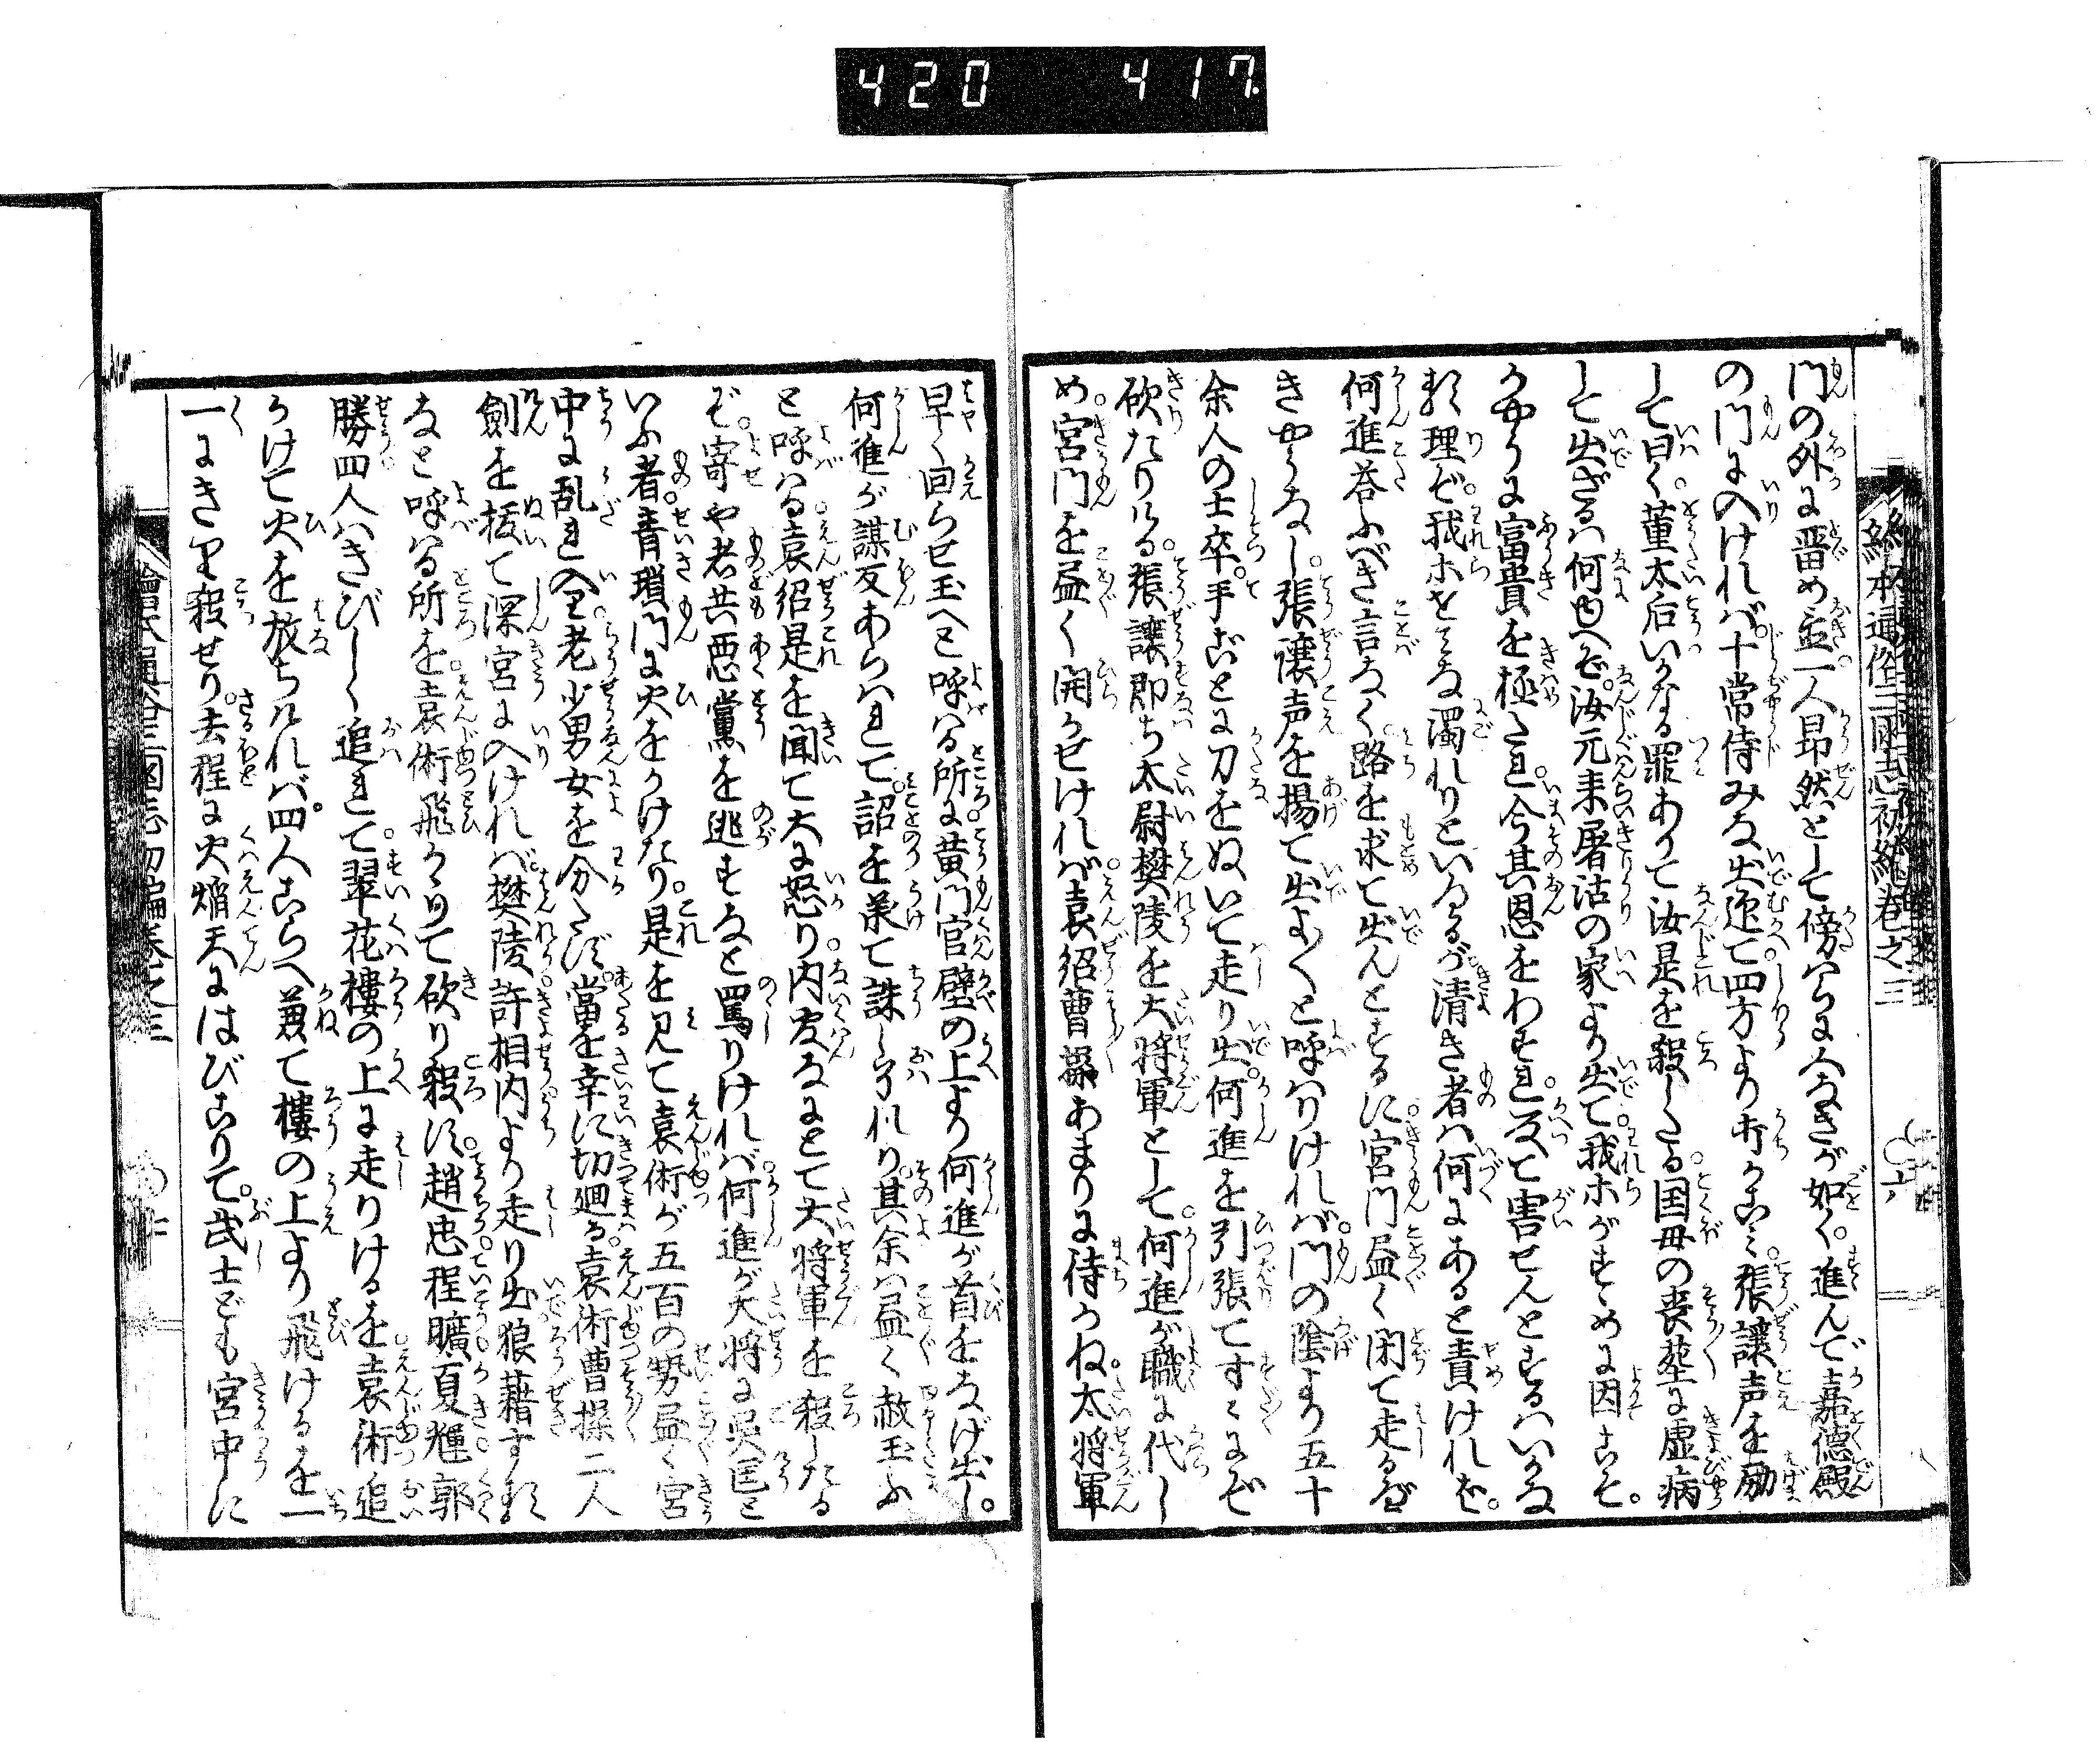 420 417.
繪本通俗三國志初編巻之三 ○六
門の外に畱め置一人昂然として傍らに人なきが如く。進んで嘉德殿
の門に入けれバ。十常侍みな出迎て四方より打かこミ。張讓声を勵
して曰く。董太后いかなる罪ありて汝是を殺したる。国母の喪塟に虚病
して出ざるハ何ゆへぞ。汝元来屠沽の家より出て。我ホがすゝめに因こそ。
かやうに富貴を極たれ。今其恩をわすれ。反て害せんとするハいかな
る理ぞ。我ホをミな濁れりといゝるが清き者ハ何にあると責けれど。
何進荅ふべき言なく。路を求て出んとするに。宮門尽く閉て走るべ
きやうなし。張讓声を揚て出よ〱と呼ハりけれバ。門の陰より五十
余人の士卒。手ごとに刀をぬいて走り出。何進を引張てすたにぞ
砍たりける。張讓即ち太尉樊陵を大將軍として。何進が職に代し
め。宮門を尽く開かせけれバ。袁紹曹操あまりに待かね。大將軍
早く回らせ玉へと呼ハる所に黄門官壁の上より何進が首をなげ出し。
何進が謀反あらハれて。詔を承て誅し畢れり。其余ハ尽く赦玉ふ
と呼ハる。袁紹是を聞て大に怒り。内官なにとて大將軍を殺したる
ぞ。寄や者共悪黨を逃すなと罵りけれバ。何進が大將に呉匡と
いふ者。青瑣門に火をかけたり。是を見て袁術が五百の勢尽く宮
中に乱れ入。老少男女を分たず。當を幸に切廻る。袁術曹操二人
劍を抜て深宮に入けれバ。樊陵許相内より走り出。狼藉する
なと呼ハる所を袁術飛かゝりて砍り殺す。趙忠程曠夏輝郭
勝四人ハきびしく追れて。翠花樓の上に走りけるを。袁術追
かけて火を放ちけれバ。四人こらへ兼て樓の上より飛けるを一
一にきり殺せり。去程に火焔天にはびこりて。武士ども宮中に
繪本通俗三國志初編巻之三